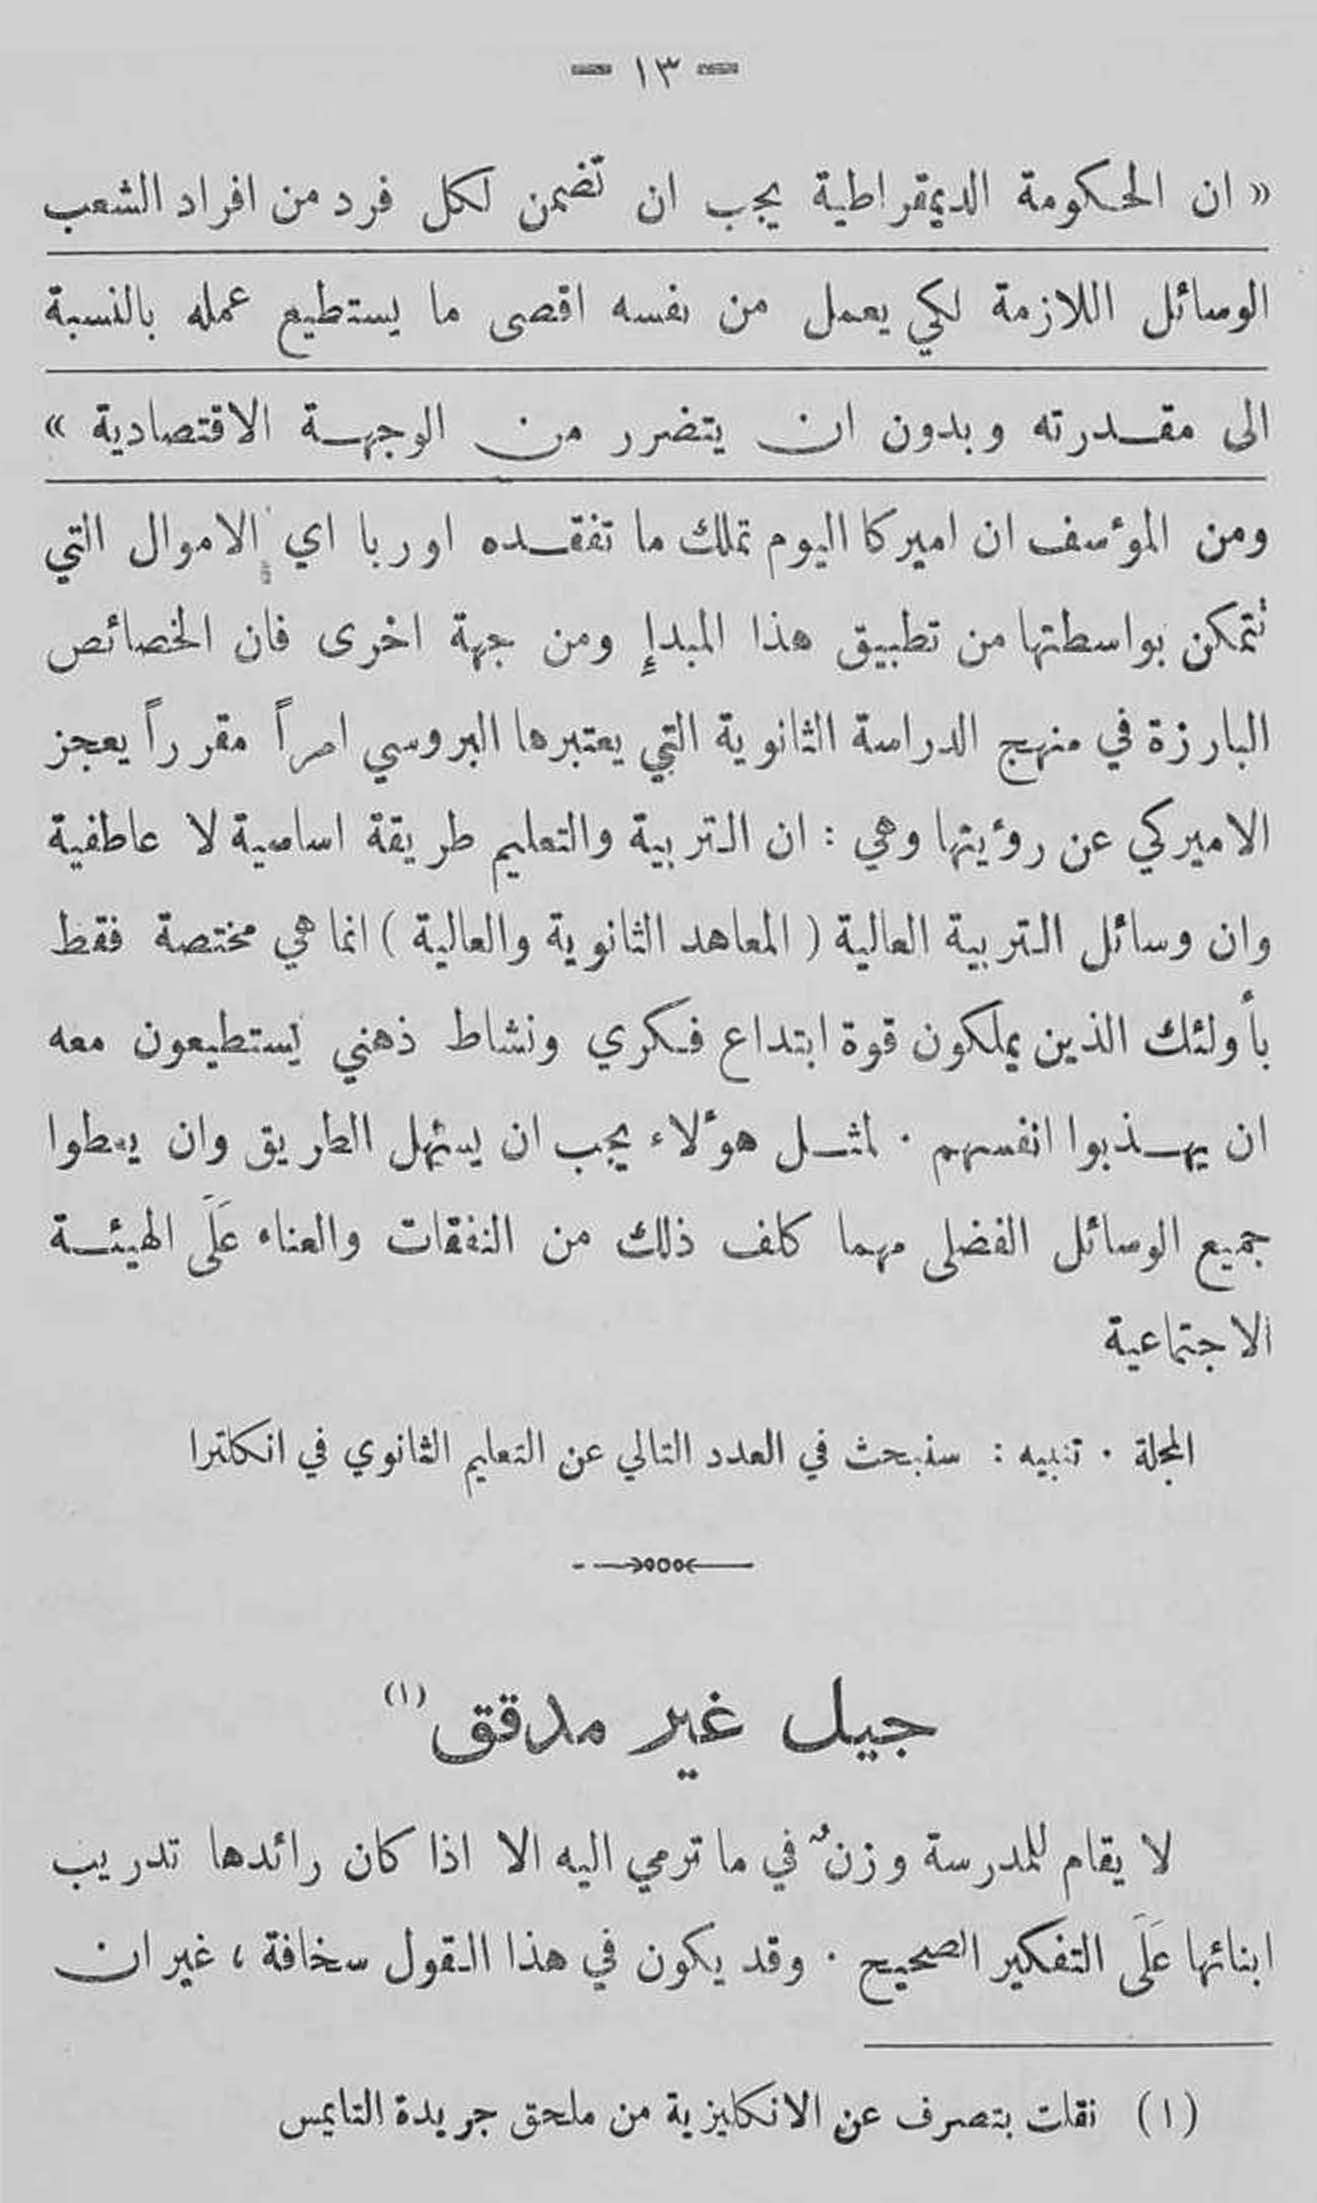 — ١٣ —
« ان الحكومة الديمقراطية يجب ان تضمن لكل فرد من افراد الشعب
الوسائل اللازمة لكي يعمل من نفسه اقصى ما يستطيع عمله بالنسبة
الى مقدرته وبدون ان يتضرر من الوجهة الاقتصادية »
ومن المؤسف ان اميركا اليوم تملك ما تفقده اوربا اي الاموال التي
تتمكن بواسطتها من تطبيق هذا المبدإ ومن جهة اخرى فان الخصائص
البارزة في منهج الدراسة الثانوية التي يعتبرها البروسي امراً مقرراً يعجز
الاميركي عن رؤيتها وهي : ان التربية والتعليم طريقة اساسية لا عاطفية
وان وسائل التربية العالية ( المعاهد الثانوية والعالية ) انما هي مختصة فقط
بأولئك الذين يملكون قوة ابتداع فكري ونشاط ذهني يستطيعون معه
ان يهذبوا انفسهم . لمثل هؤلاء يجب ان يسهل الطريق وان يعطوا
جميع الوسائل الفضلى مهما كلف ذلك من النفقات والعناء عَلَى الهيئة
الاجتماعية
المجلة . تنبيه : سنبحث في العدد التالي عن التعليم الثانوي في انكلترا
جيل غير مدقق (١)
لا يقام للمدرسة وزنٌ في ما ترمي اليه الا اذا كان رائدها تدريب
ابنائها عَلَى التفكير الصحيح . وقد يكون في هذا القول سخافة ، غير ان
(١) نقلت بتصرف عن الانكليزية من ملحق جريدة التايمس